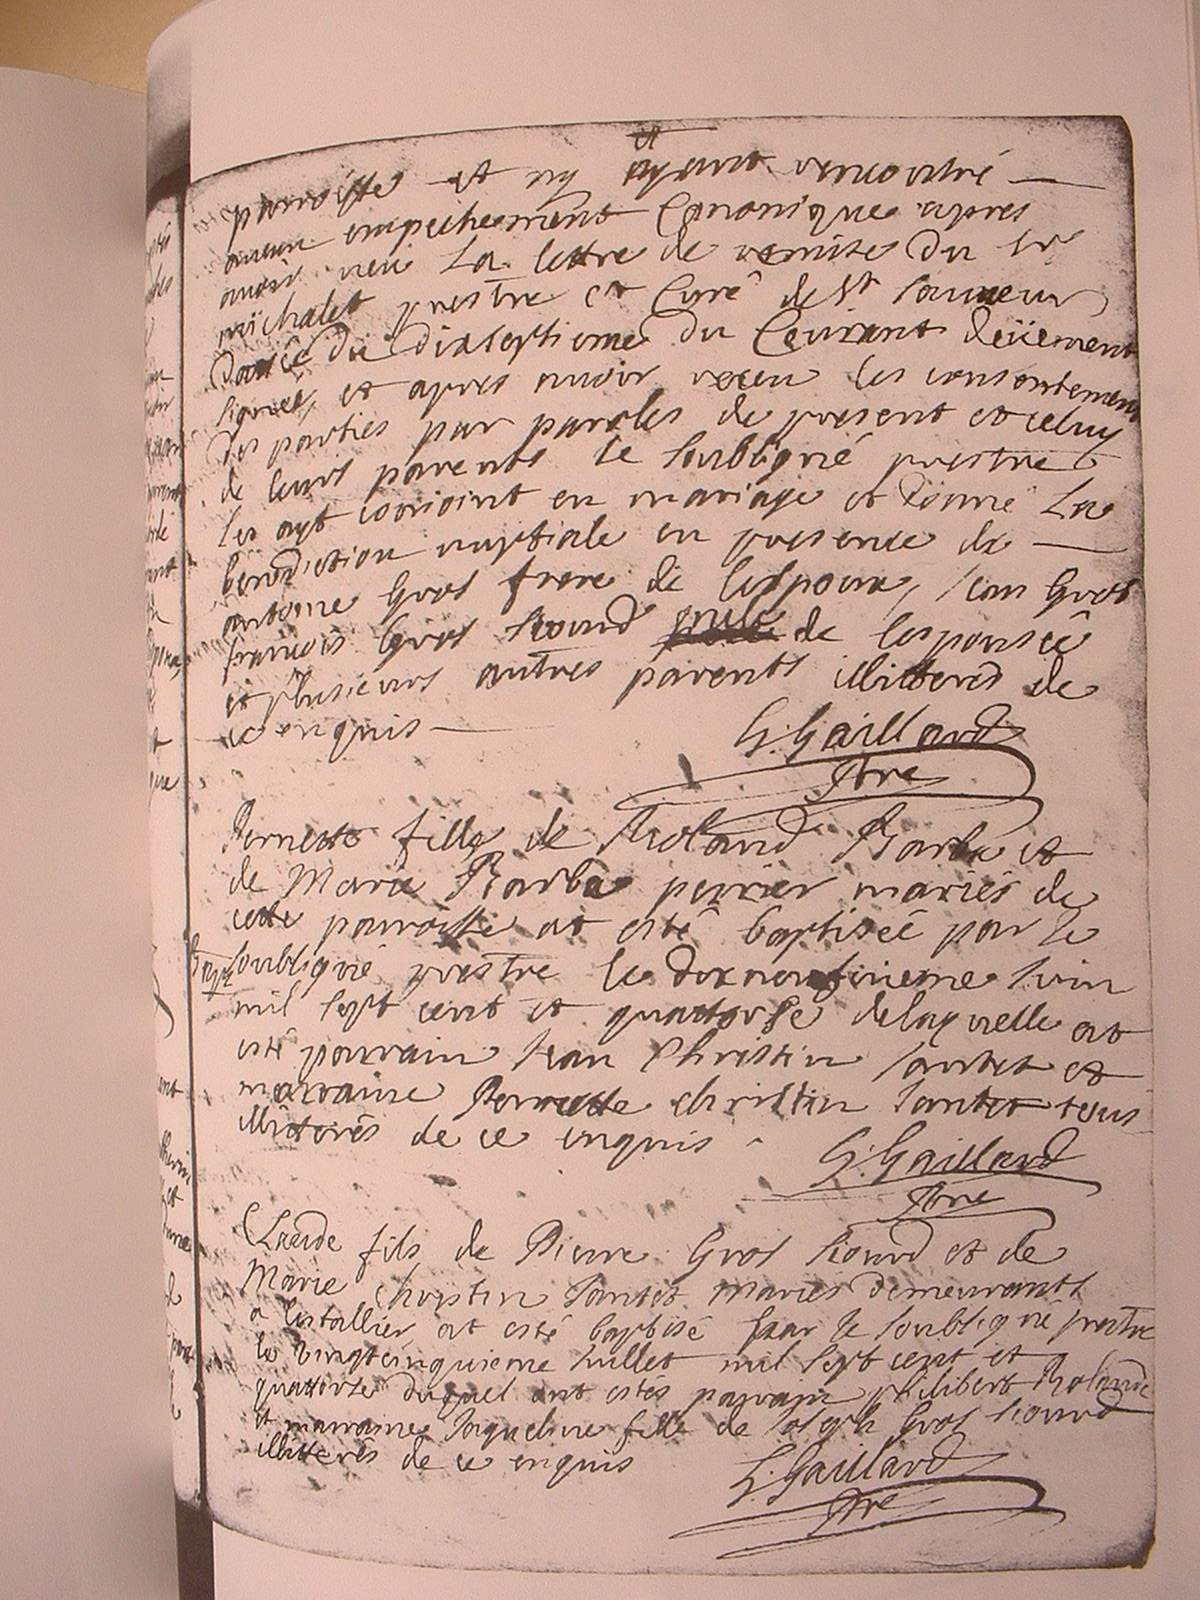 parroisse et ny ayant rencontré
et
aucun empechement Canonique apres
avoir veu La lettre de remise du Sr
michalet prestre et Curé de St Sauveur
datée du dixseptieme du Courant deüement
signée, et apres avoir receu les consentements
des parties par paroles de present et celuy
de leurs parents le soubsigné prestre
les ayt conjoint en mariage et donné La
benediction nuptiale en presence de
antoine Gros frere de lespoux, Jean Gros
francois Gros Sicurd de lespousée
et plusieurs autres parents illitterés de
ce enquis
G: Gaillard
Ptre
Pernette fille de Roland Barbe et
de Marie Barbe perrier mariés de
cette parroisse at esté baptisée par le
soubsigné prestre le dixneufvieme Juin
mil sept cent et quattorse delaquelle at
esté parrain Jean Christin Jantet et
marraine Pernette christin Jantet tous
illitterés de ce enquis
G: Gaillard
Ptre
Claude fils de Pierre Gros Sicurd et de
Marie Christin Jantet mariés demeurants
a Lestallier at esté baptisé par le soubsigné prestre
le vingtcinquieme Jullet mil sept cent et
quattorse duquel ont estés parrain philibert Rolande
et marraine Jaqueline fille de Joseph Gros Sicurd
illitterés de ce enquis
G: Gaillard
Ptre